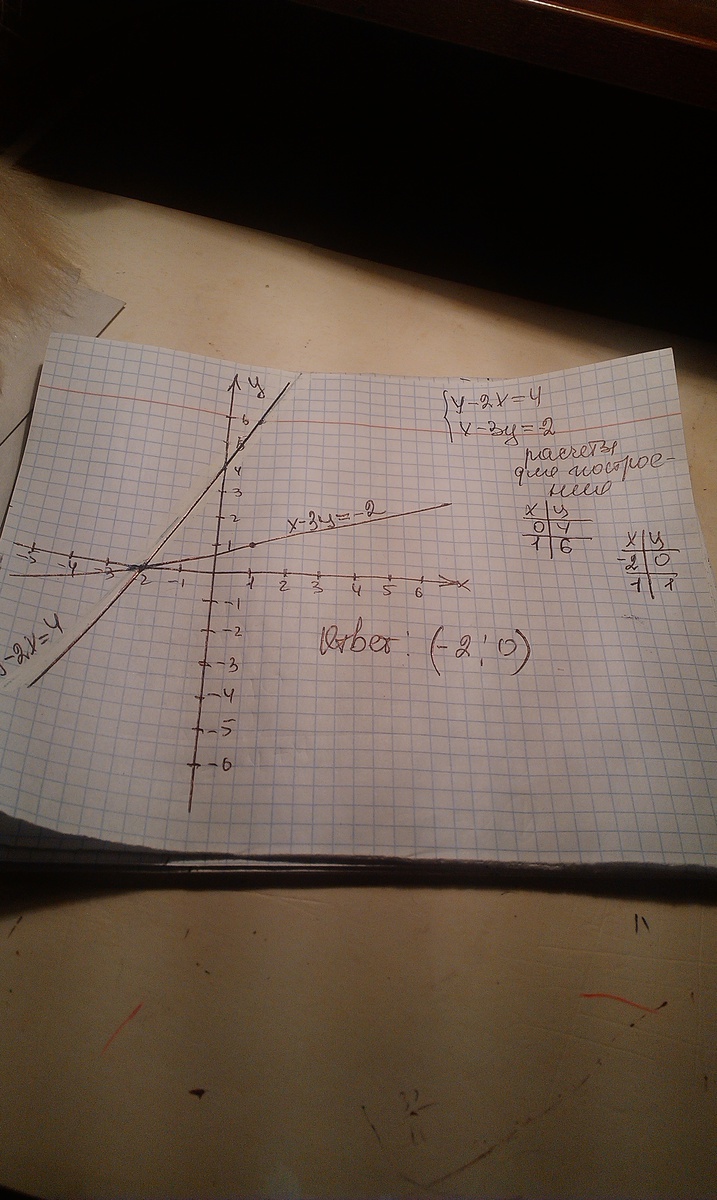 y
6
5
4
3
2
1
{y-2x=4
x-3y=-2
расчеты
для построе-
ния
x y
0 4
1 6
x y
-2 0
1 1
x-3y=-2
-5 -4 -3 -2 -1 1 2 3 4 5 6 x
-1
-2
-3
-4
-5
-6
y-2x=4
Ответ: (-2; 0)